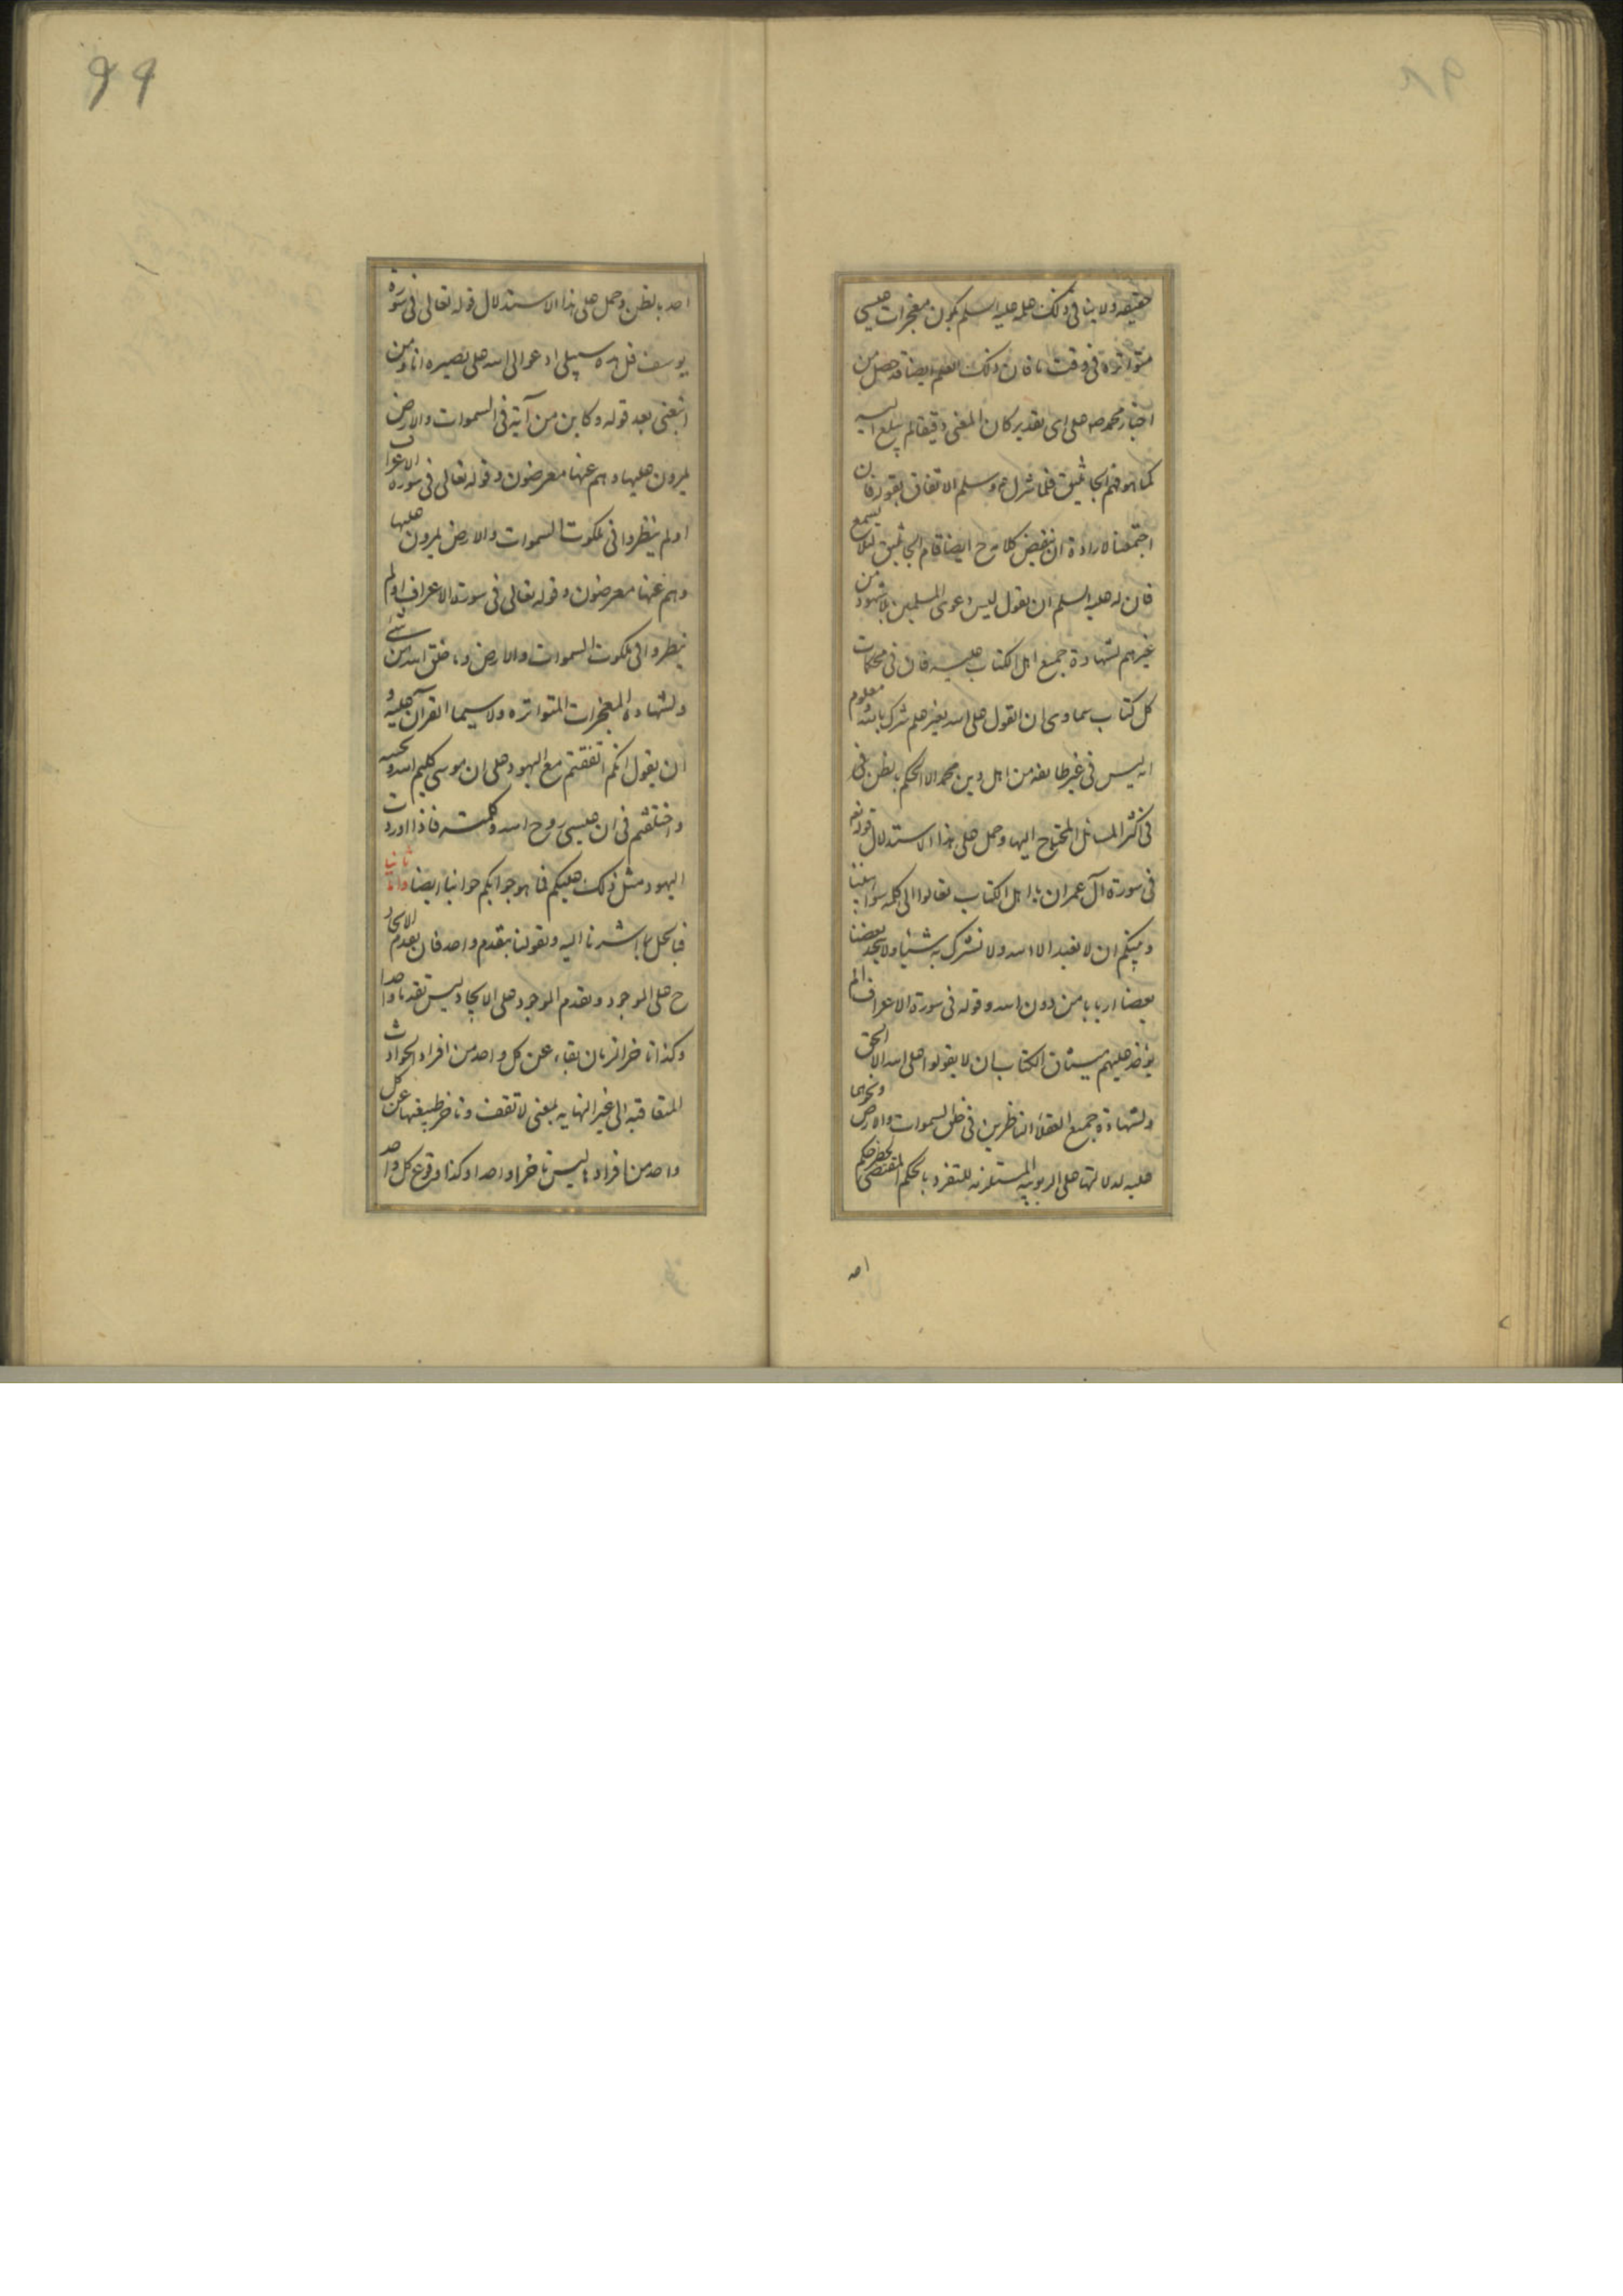 حقيقة ولا ينافى ذلك علمه عليه السلم بكون معجزات عيسى
متواترة فى وقت ما فان ذلك العلم ايضا قد حصل من
اخبار محمد صه على اى تقدير كان المعنى دقيقا لم يبلغ اليه
كما هو فهم الجاثليق فلما نزل ع وسلم الاتفاق بقوله فان
اجتمعنا لارادة ان ينقض كلامه ح ايضا قام الجاثليق لئلا يسمع
فان له عليه السلم ان يقول ليس دعوى المسلمين بلا شهود من
غيرهم لشهادة جميع اهل الكتاب عليه فان فى محكمات
كل كتاب سماوى ان القول على الله بغير علم شرك بالله و معلوم
انه ليس فى غير طايفة من اهل دين محمد الا الحكم بالظن فى
فى اكثر المسائل المحتاج اليها وحمل على هذا الاستدلال قوله تع
فى سورة آل عمران يا اهل الكتاب تعالوا الى كلمة سواء بيننا
وبينكم ان لا نعبد الا الله ولا نشرك به شيئا ولا يتخذ بعضنا
بعضا اربابا من دون الله وقوله فى سورة الاعراف الم
يؤخذ عليهم ميثاق الكتاب ان لا يقولوا على الله الا الحق
ولشهادة جميع العقلاء الناظرين فى خلق السموات والارض ونحوهما
عليه لدلالتها على الربوبية المستلزمة للتفرد بالحكم المقتضى لحظر حكم
احد
٩٩
احد بالظن وحمل على هذا الاستدلال قوله تعالى فى سورة
يوسف قل هذه سبيلى ادعوا الى الله على بصيرة انا ومن
اتبعنى بعد قوله وكاين من آية فى السموات والارض
يمرون عليها وهم عنها معرضون وقوله تعالى فى سورة الاعراف
اولم ينظروا فى ملكوت السموات والارض يمرون عليها
وهم عنها معرضون وقوله تعالى فى سورة الاعراف اولم
ينظروا فى ملكوت السموات والارض وما خلق الله من شئ
ولشهادة المعجزات المتواترة ولا سيما القرآن عليه و
ان يقول انكم اتفقتم مع اليهود على ان موسى كليم الله ونجيه
واختلفتم فى ان عيسى روح الله وكلمته فاذا اوردت
اليهود مثل ذلك عليكم فما هو جوابكم جوابنا ايضا واما ثانيا
فبالحل بما اشرنا اليه وقولنا بتقدم واحد فان بعدم الايجاد
ح على الوجود وتقدم الوجود على الايجاد ليس تقدما واحدا
وكذا تاخر زمان بقاء عن كل واحد من افراد الحوادث
المتعاقبة الى غير النهاية بمعنى لا تقف وتاخر طبيعتها عن كل
واحد من افرادها ليس تاخرا واحدا وكذا وقوع كل واحد